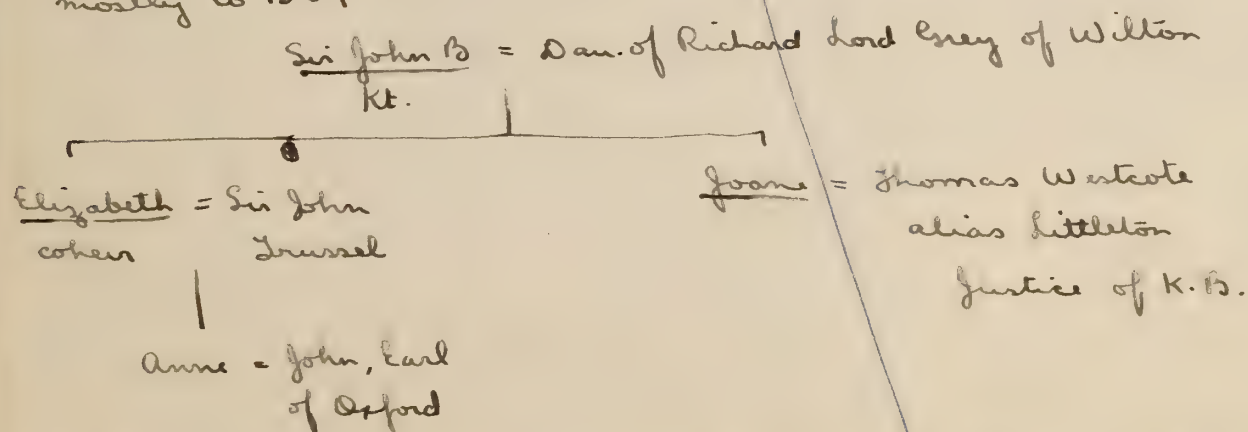 mostly to
Sir John B = Dau. of Richard Lord Grey of Wilton
Kt.
Elizabeth = Sir John
coheir Trussel
Joane = Thomas Westcote
alias Littleton
Justice of K.B.
Anne = John, Earl
of Oxford